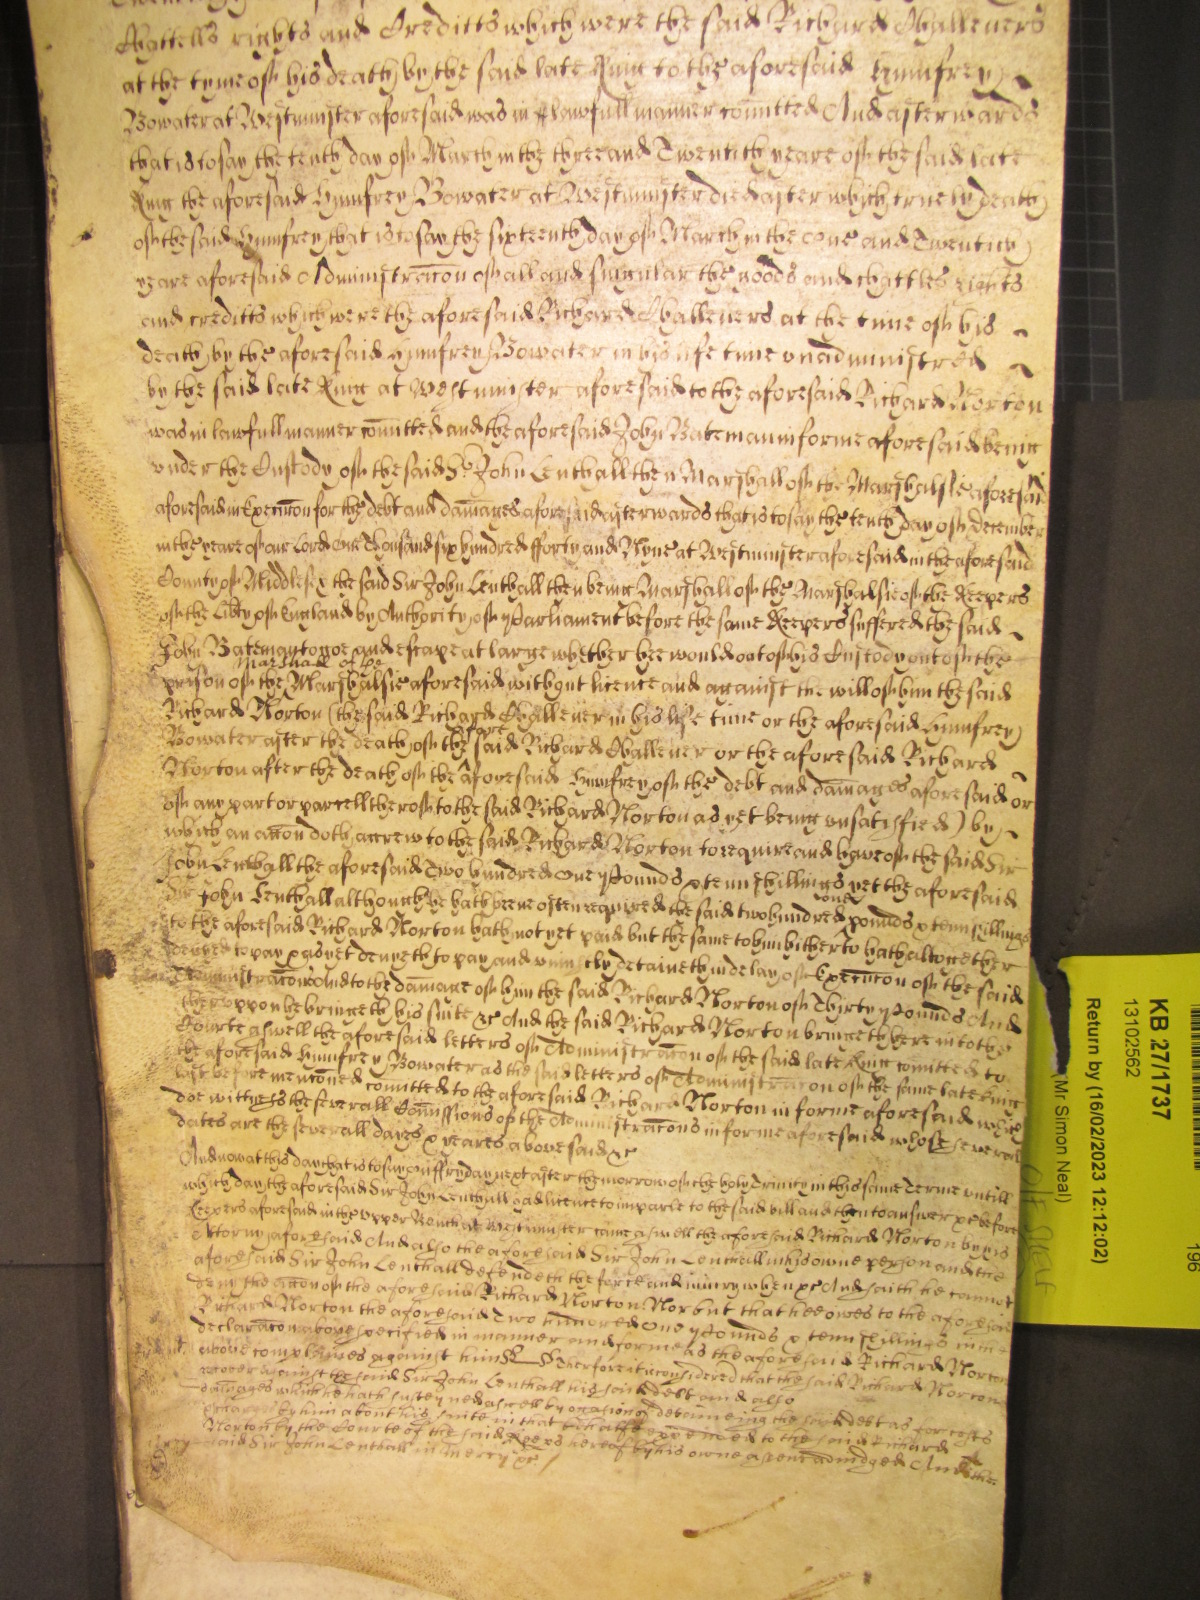 Chattells rights and Creditts which were the said Richard Challeners
at the tyme of his death by the said late King to the aforesaid Humfrey
Bowater at Westminster aforesaid was in lawfull manner comitted And afterwards
that is to say the tenth day of March in the three and Twentith yeare of the said late
King the aforesaid Humfrey Bowater at Westminster died after which truely death
of the said Humfrey that is to say the sixteenth day of March in the one and Twentith
yeare aforesaid Administracon of all and singular the goods and chattles rights
and creditts which were the aforesaid Richard Challeners at the time of his
death by the aforesaid Humfrey Bowater in his life time unadministred
by the said late King at Westminister aforesaid to the aforesaid Richard Norton
was in lawfull manner comitted and the aforesaid John Bateman in forme aforesaid being
under the Custody of the said Sr John Lenthall then Marshall of the Marshalsie aforesaid
aforesaid in Execucon for the debt and damages aforesaid afterwards that is to say the tenth day of December
in the yeare of our Lord One Thousand six hundred fforty and Nyne at Westminster aforesaid in the aforesaid
County of Middlesex the said Sir John Lenthall then being Marshall of the Marshalsie of the Keepers
of the Libty of England by Authority of Parliament before the same Keepers suffered the said
John Bateman to goe and escape at large whether hee would out of his Custody out of the
Marshall of the
prison of the Marshalsie aforesaid without licence and against the will of him the said
Richard Norton (the said Richard Challener in his life time or the aforesaid Humfrey
Bowater after the death of the afore said Richard Challener or the aforesaid Richard
Norton after the death of the aforesaid Humfrey of the debt and damages aforesaid or
of any part or parcell therof to the said Richard Norton as yet being unsatisfied) by
which an accon doth accrew to the said Richard Norton to require and have of the said Sir
John Lenthall the aforesaid Two hundred one pounds & tenn shillings yet the aforesaid
Sir John Lenthall although he hath beene often required the said two hundred one pounds & tenn shillings
to the aforesaid Richard Norton hath not yet paid but the same to him hitherto hath altogether
denyed to pay & as yet denyeth to pay and uniustly detaineth in delay of Execucon of the said
Administracon And to the damage of him the said Richard Norton of Thirty pounds And
theruppon he bringeth his suite &c And the said Richard Norton bringeth here into the
Courte aswell the aforesaid letters of Administracon of the said late King comitted to
the aforesaid Humfrey Bowater as the said letters of Administracon of the same late King
last before menconed comitted to the aforesaid Richard Norton in forme aforesaid which
doe witnes the severall Comissions of the Administracons in forme aforesaid whose severall
dates are the severall dayes & yeares above said &c
And now at this day that is to say ffryday next after the morrow of the holy Trinity in this same Terme untill
which day the aforesaid Sir John Lenthall had licence to imparle to the said bill and then to answer &c before
Keepers aforesaid in the upper Bench at Westminster came aswell the aforesaid Richard Norton by his
Attorny aforesaid And also the aforesaid Sir John Lenthall in his owne person and the
aforesaid Sir John Lenthall defendeth the force and iniury when &c And saith he cannot
deny the accon of the aforesaid Richard Norton Nor but that hee owes to the aforesaid
Richard Norton the aforesaid Two hundred one pounds & tenn shillings in
declaracon above specified in manner and forme as the aforesaid Richard Norton
above complaines against him Therfore it is considered that the said Richard Norton
recover against the said Sir John Lenthall his said debt and also
damages which he hath susteyned aswell by occasion of deteineing the said debt as for costs
& charges by him about his suite in that behalfe expended to the said Richard
Norton by the Courte of the said Keepers hereof by his owne assent adiudged And the
said Sir John Lenthall in mercy &c
KB 27/1737
13102562
Return by (16/02/2023 12:12:02)
Mr Simon Neal)
196